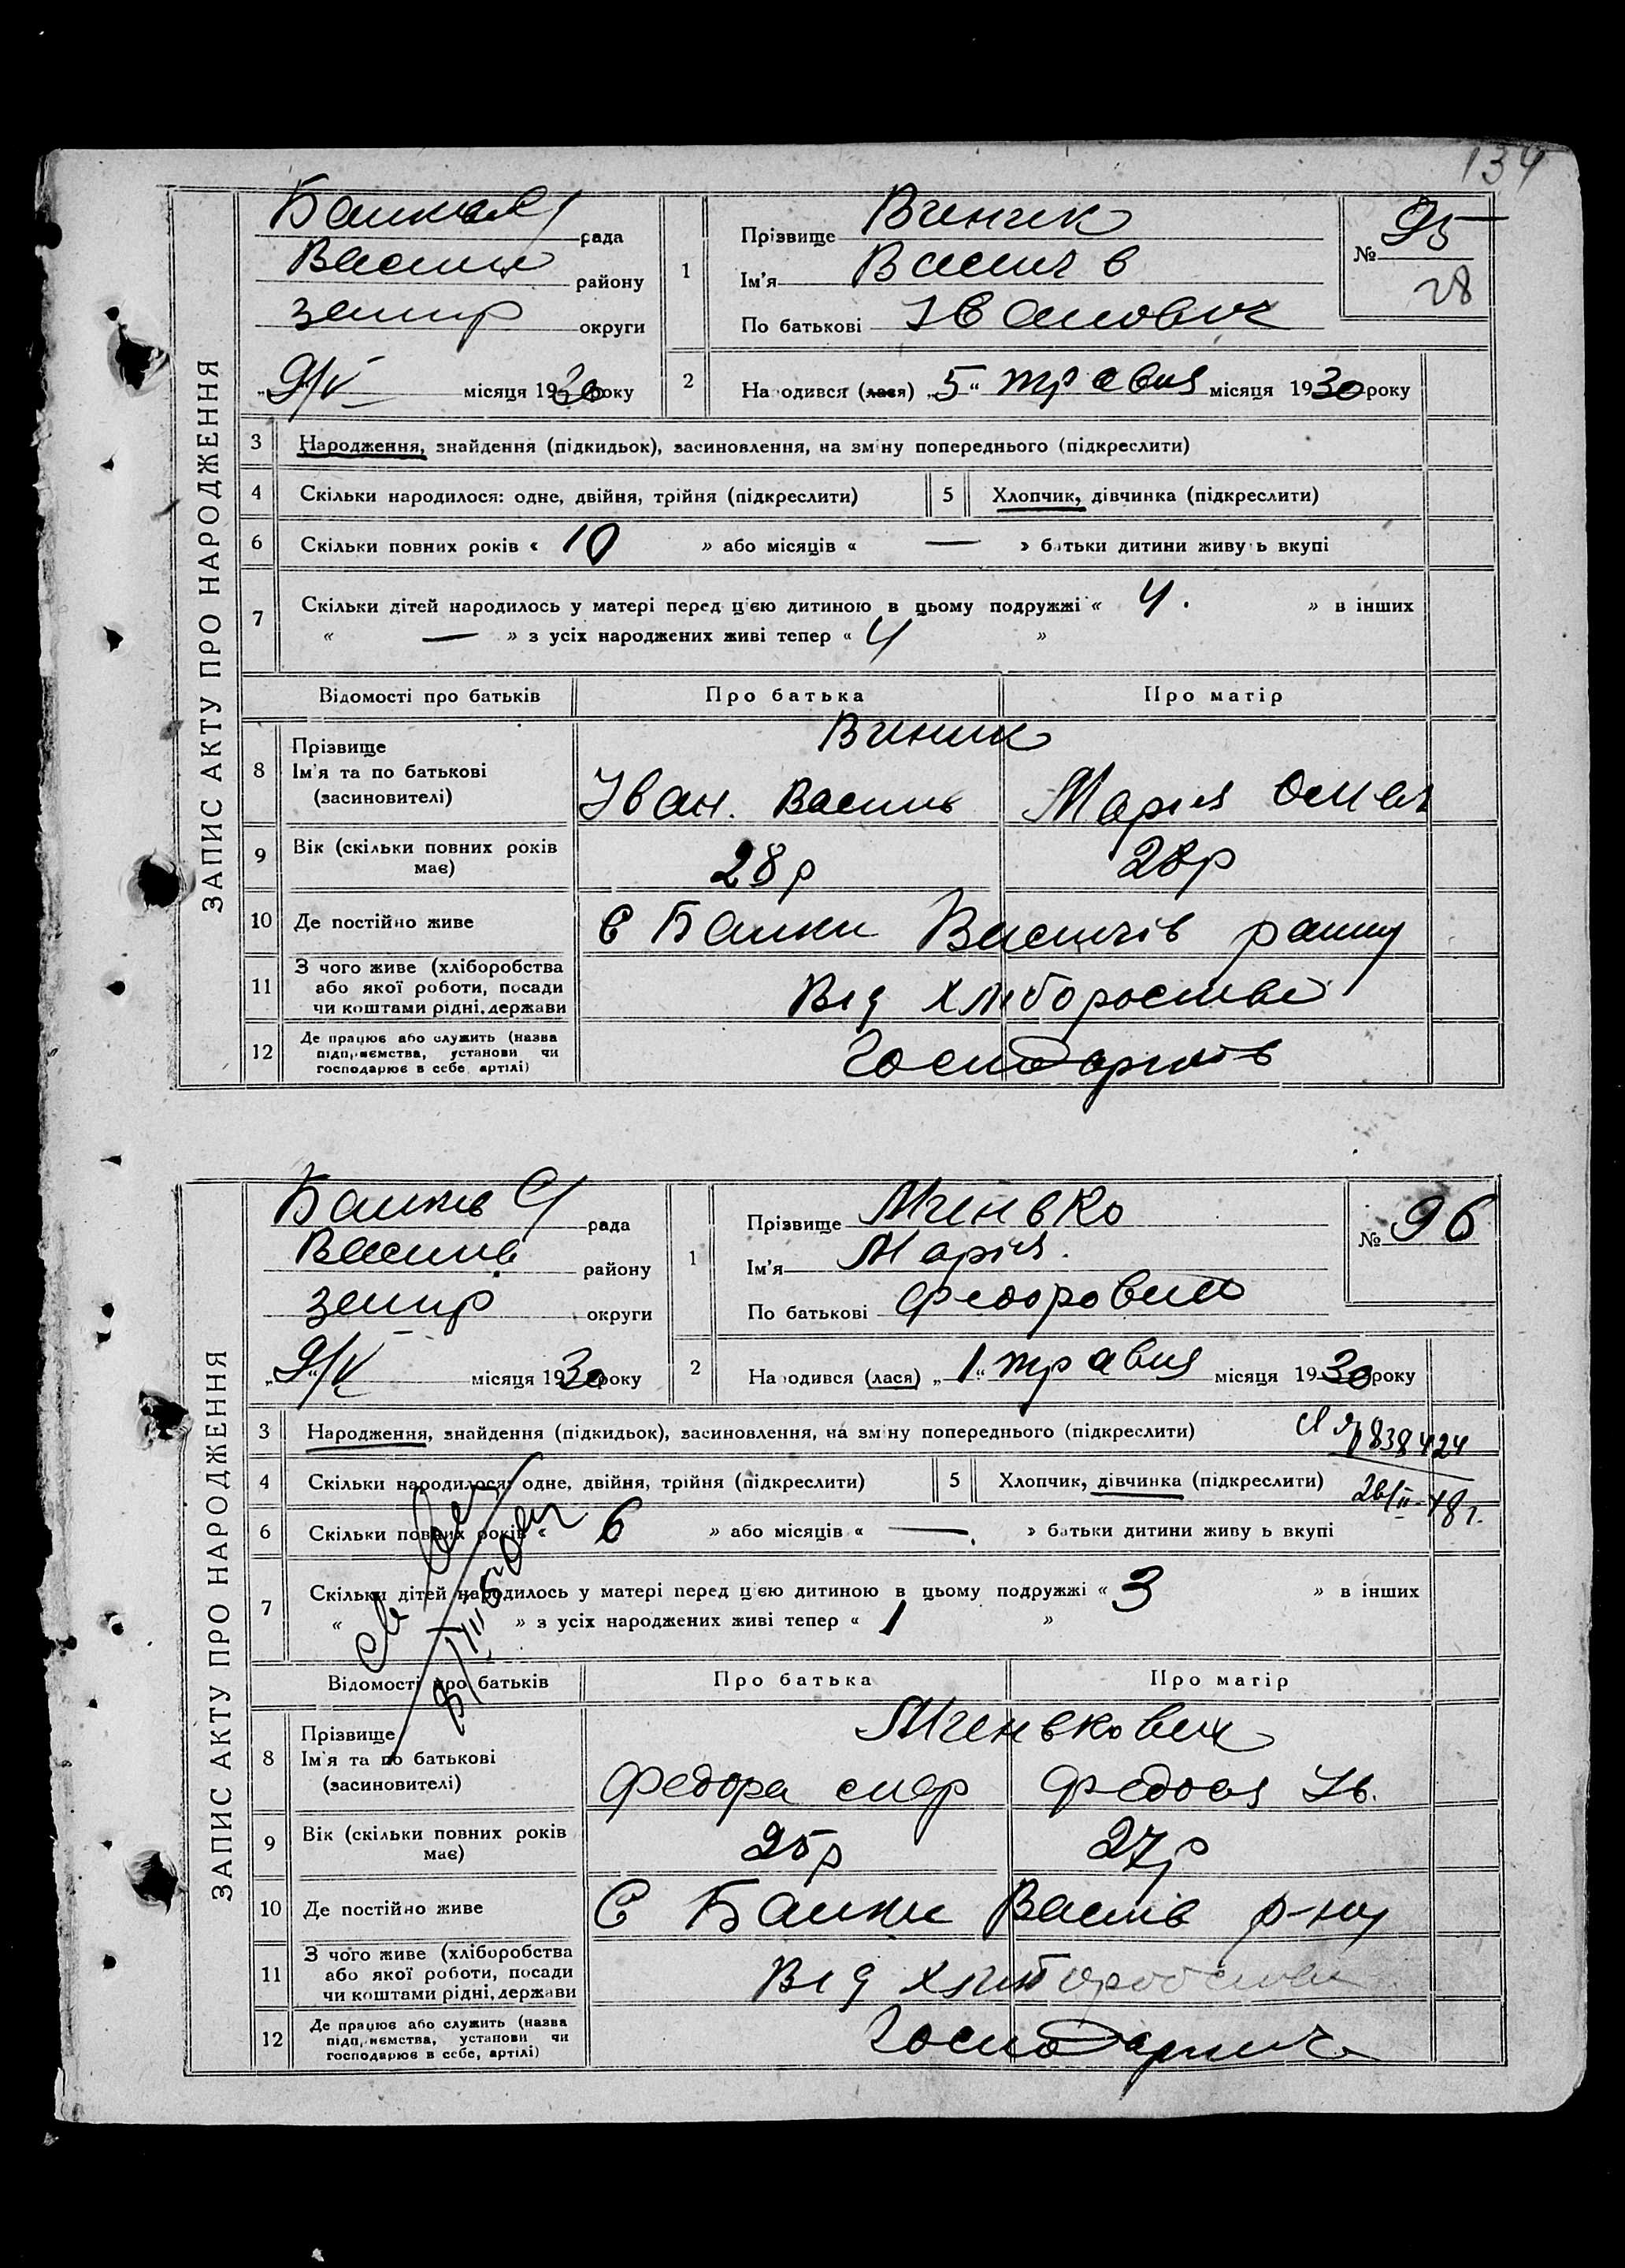 134
ЗАПИС АКТУ ПРО НАРОДЖЕННЯ
рада
району
Запор округи
„9/V місяця 1930 року
1 Прізвище
Ім'я
По батькові Іванович
№ 95
28
2 Народився (лася) „5“ травня місяця 1930 року
3 Народження, знайдення (підкидьок), засиновлення, на зміну попереднього (підкреслити)
4 Скільки народилося: одне, двійня, трійня (підкреслити) 5 Хлопчик, дівчинка (підкреслити)
6 Скільки повних років « 10 » або місяців « — » батьки дитини живуть вкупі
7 Скільки дітей народилось у матері перед цією дитиною в цьому подружжі « 4. » в інших
« — » з усіх народжених живі тепер « 4 »
Відомості про батьків Про батька Про матір
8 Прізвище
Ім'я та по батькові
(засиновителі)
Іван. Василь Марія
9 Вік (скільки повних років має) 28 р 28 р
10 Де постійно живе с Балки району
11 З чого живе (хліборобства або якої роботи, посади чи коштами рідні, держави Від хлібороства
12 Де працює або служить (назва підприємства, установи чи господарює в себе, артілі)
ЗАПИС АКТУ ПРО НАРОДЖЕННЯ
рада
Василів району
Запор округи
„9/V місяця 1930 року
1 Прізвище
Ім'я Марія.
По батькові Федоровна
№ 96
2 Народився (лася) „1“ травня місяця 1930 року
3 Народження, знайдення (підкидьок), засиновлення, на зміну попереднього (підкреслити)
838424
4 Скільки народилося: одне, двійня, трійня (підкреслити) 5 Хлопчик, дівчинка (підкреслити)
26/II-48 г.
6 Скільки повних років « 6 » або місяців « — » батьки дитини живуть вкупі
7 Скільки дітей народилось у матері перед цією дитиною в цьому подружжі « 3 » в інших
« — » з усіх народжених живі тепер « 1 »
Відомості про батьків Про батька Про матір
8 Прізвище
Ім'я та по батькові
(засиновителі)
Федора Федося Ів.
9 Вік (скільки повних років має) 25 р 27 р
10 Де постійно живе С Балки Васлів р-ну
11 З чого живе (хліборобства або якої роботи, посади чи коштами рідні, держави Від хліборобства
12 Де працює або служить (назва підприємства, установи чи господарює в себе, артілі)